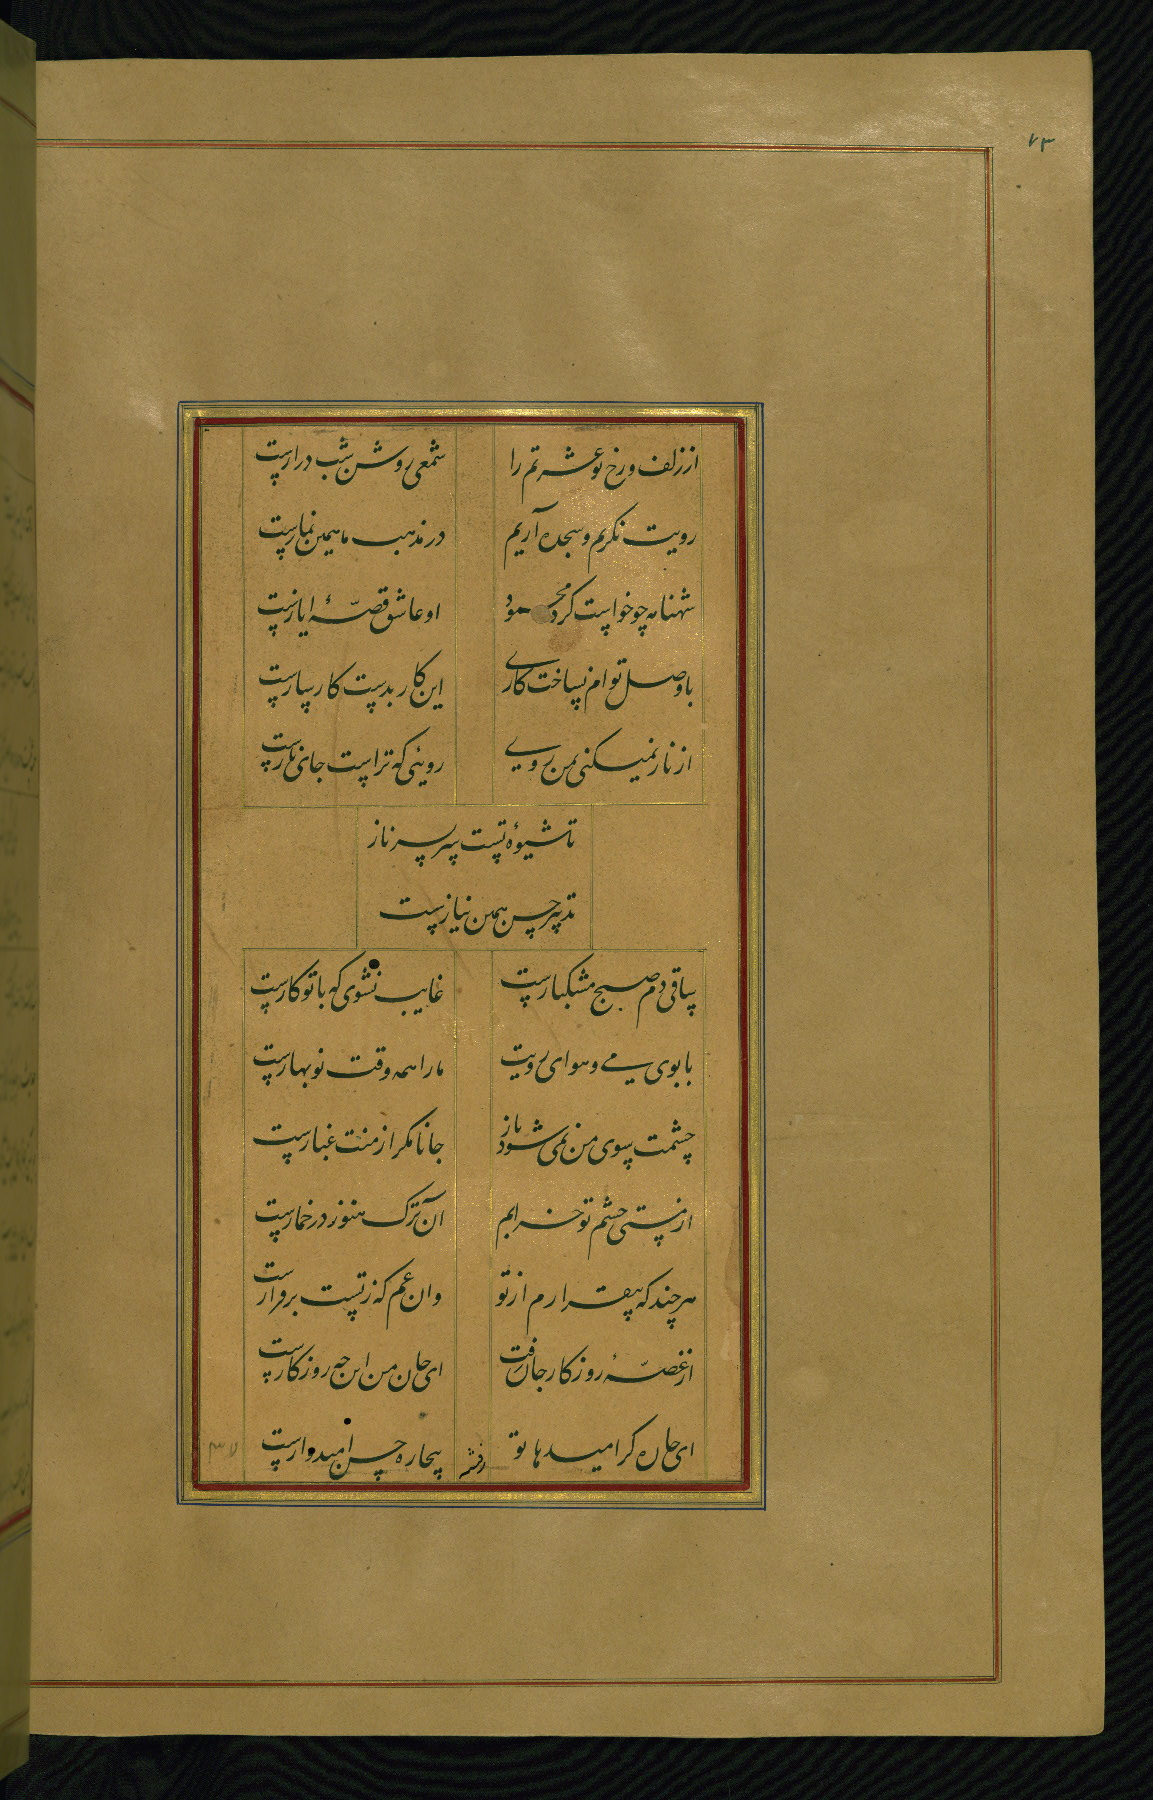 ۷۳
از زلف و رخ تو عشرتم را شمعی روشن شب درازست
رویت نکریم و سجده آریم در مذهب ما همین نمازست
شهنامه چو خواست کرد محمود او عاشق قصهٔ ایازست
با وصل توام نساخت کاری این کار بدست کارسازست
از ناز نمیکنی بمن روی رویی که تراست جای نازست
تا شیوهٔ تست سر بسر ناز
تدبیر حسن همین نیازست
ساقی دم صبح مشکبارست غایب نشوی که با تو کارست
با بوی می و هوای رویت ما را همه وقت نوبهارست
چشمت بسوی من نمی شود باز جانا مکر از منت غبارست
از مستی چشم تو خرابم آن ترک هنوز در خمارست
هر چند که بیقرارم از تو وان غم که ز تست برقرارست
از غصهٔ روزکار جان رفت ای جان من این چه روزکارست
ای جان کرامید‌ها تو بیچاره حسن امیدوارست